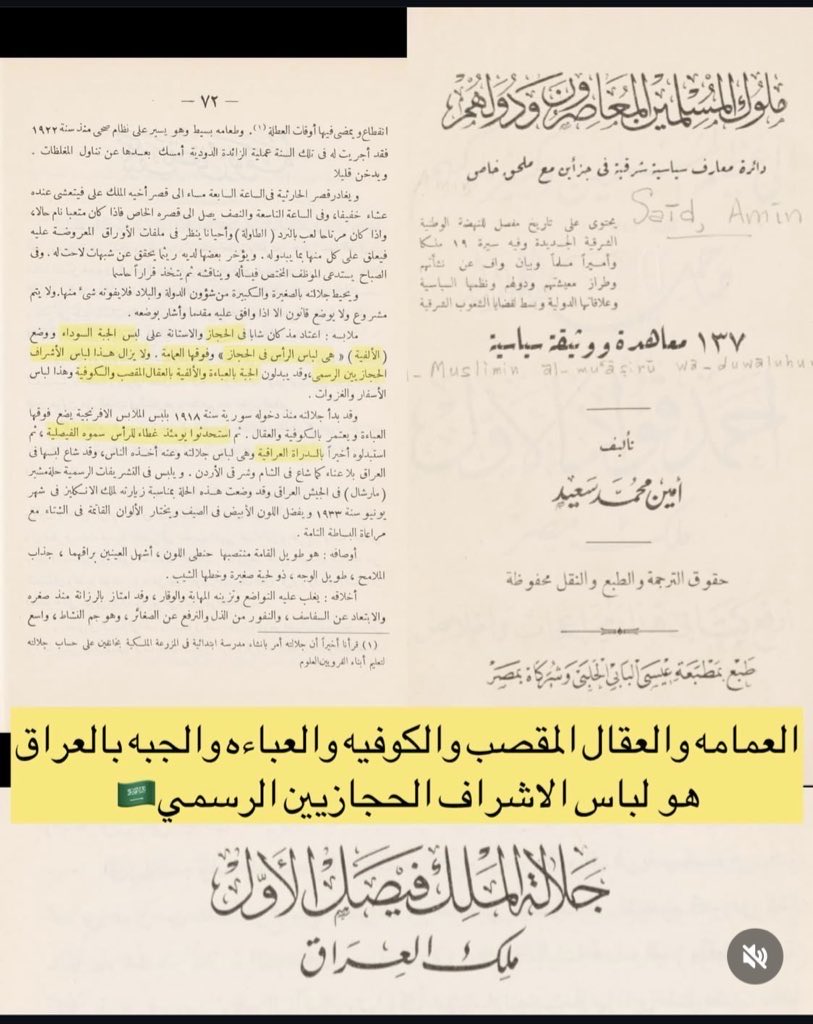 — ٧٢ —
انقطاع ويمضى فيها أوقات العطلة (١) . وطعامه بسيط وهو يسير على نظام صحى منذ سنة ١٩٢٢
فقد أجريت له فى تلك السنة عملية الزائدة الدودية أمسك بعدها عن تناول المغلظات .
ويدخن قليلا
ويغادر قصر الحارثية فى الساعة السابعة مساء الى قصر أخيه الملك على فيتعشى عنده
عشاء خفيفا، وفى الساعة التاسعة والنصف يصل الى قصره الخاص فاذا كان متعبا نام حالا،
واذا كان مرتاحا لعب بالنرد (الطاولة) وأحيانا ينظر فى ملفات الأوراق المعروضة عليه
فيعلق على كل منها بما يبدو له . ويؤخر بعضها لديه ريثما يحقق عن شبهات لاحت له. وفى
الصباح يستدعى الموظف المختص فيسأله ويناقشه ثم يتخذ قراراً حاسما
ويحيط جلالته بالصغيرة والكبيرة من شؤون الدولة والبلاد فلا يفوته شىء منها. ولا يتم
مشروع ولا يوضع قانون الا اذا وافق عليه مقدما وأشار بوضعه .
ملابسه : اعتاد مذ كان شابا فى الحجاز والاستانة على لبس الجبة السوداء ووضع
( الألفية ) « هى لباس الرأس فى الحجاز » وفوقها العمامة . ولا يزال هذا لباس الأشراف
الحجازيين الرسمى، وقد يبدلون الجبة بالعباءة والألفية بالعقال المقصب والكوفية وهذا لباس
الأسفار والغزوات .
وقد بدأ جلالته منذ دخوله سورية سنة ١٩١٨ بلبس الملابس الافرنجية يضع فوقها
العباءة ويعتمر بالكوفية والعقال . ثم استحدثوا يومئذ غطاء للرأس سموه الفيصلية ، ثم
استبدلوه أخيراً بالسدراة العراقية وهى لباس جلالته وعنه أخذه الناس، وقد شاع لبسها فى
العراق بلا عناء كما شاع فى الشام وشرقى الأردن . ويلبس فى التشريفات الرسمية حلة مشير
( مارشال ) فى الجيش العراقى وقد وضعت هذه الحلة بمناسبة زيارته لملك الانكليز فى شهر
يونيو سنة ١٩٣٣ ويفضل اللون الأبيض فى الصيف ويختار الألوان القاتمة فى الشتاء مع
مراعاة البساطة التامة .
أوصافه : هو طويل القامة منتصبها حنطى اللون ، أشهل العينين براقهما ، جذاب
الملامح ، طويل الوجه ، ذو لحية صغيرة وخطها الشيب .
أخلاقه : يغلب عليه التواضع وتزينه المهابة والوقار ، وقد امتاز بالرزانة منذ صغره
والابتعاد عن السفاسف ، والنفور من الذل والترفع عن الصغائر ، وهو جم النشاط ، واسع
(١) قرأنا أخيراً أن جلالته أمر بانشاء مدرسة ابتدائية فى المزرعة الملكية بخانقين على حساب جلالته
لتعليم أبناء القرويين العلوم
ملوك المسلمين المعاصرون ودولهم
دائرة معارف سياسية شرقية فى جزأين مع ملحق خاص
Saīd, Amīn
يحتوى على تاريخ مفصل للنهضة الوطنية
الشرقية الجديدة وفيه سيرة ١٩ ملكا
وأميراً مسلماً وبيان واف عن نشأتهم
وطراز معيشتهم ودولهم ونظمها السياسية
وعلاقاتها الدولية وبسط لقضايا الشعوب الشرقية
١٣٧ معاهدة ووثيقة سياسية
- Muslimin al-muʻāṣirū wa-duwaluhum
تأليف
أمين محمد سعيد
حقوق الترجمة والطبع والنقل محفوظة
طبع بمطبعة عيسى البابى الحلبى وشركاه بمصر
العمامه والعقال المقصب والكوفيه والعباءه والجبه بالعراق
هو لباس الاشراف الحجازيين الرسمي🇸🇦
جلالة الملك فيصل الأول
ملك العراق